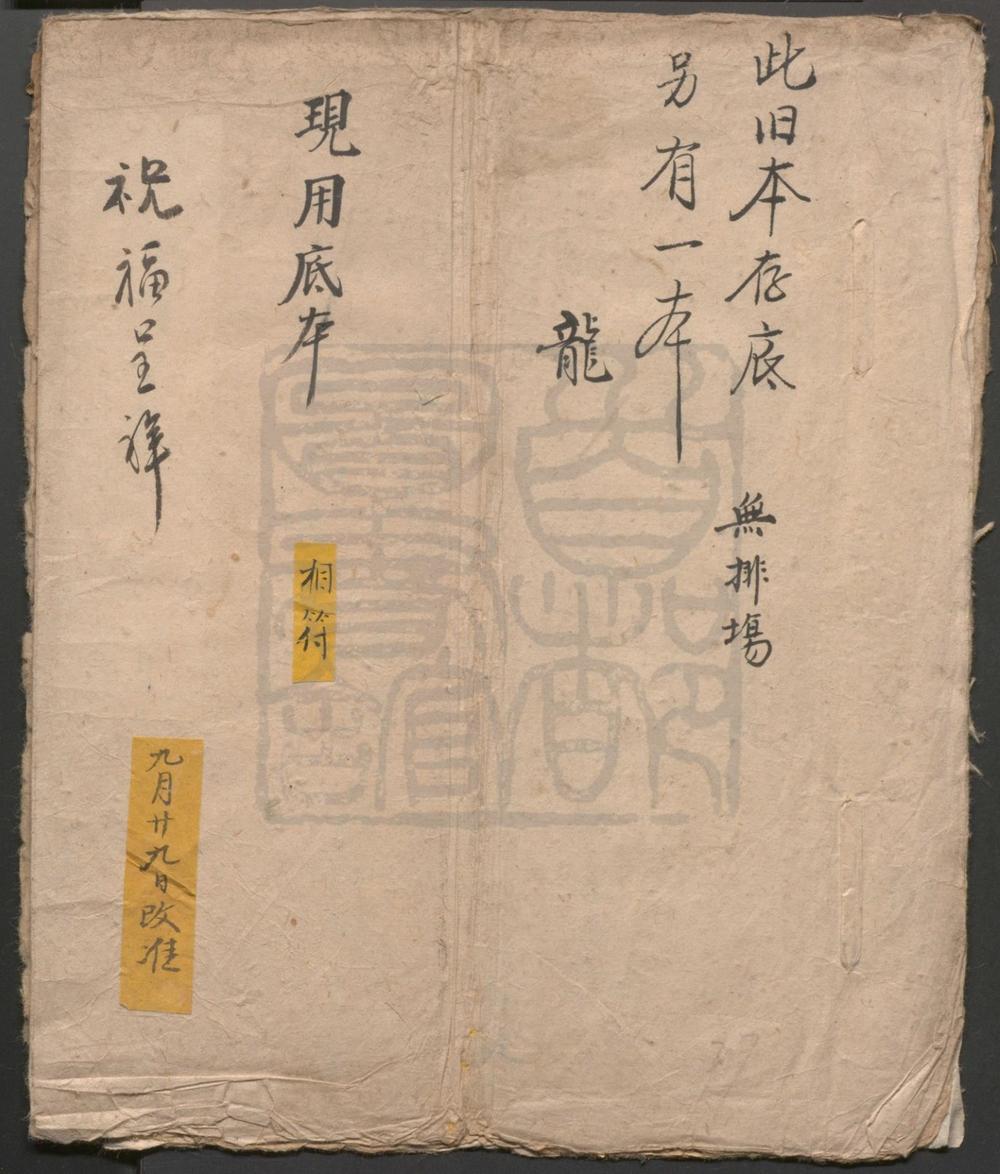 此旧本存底
無排場
另有一本
龍
現用底本
相符
祝福呈祥
九月廿九日改准